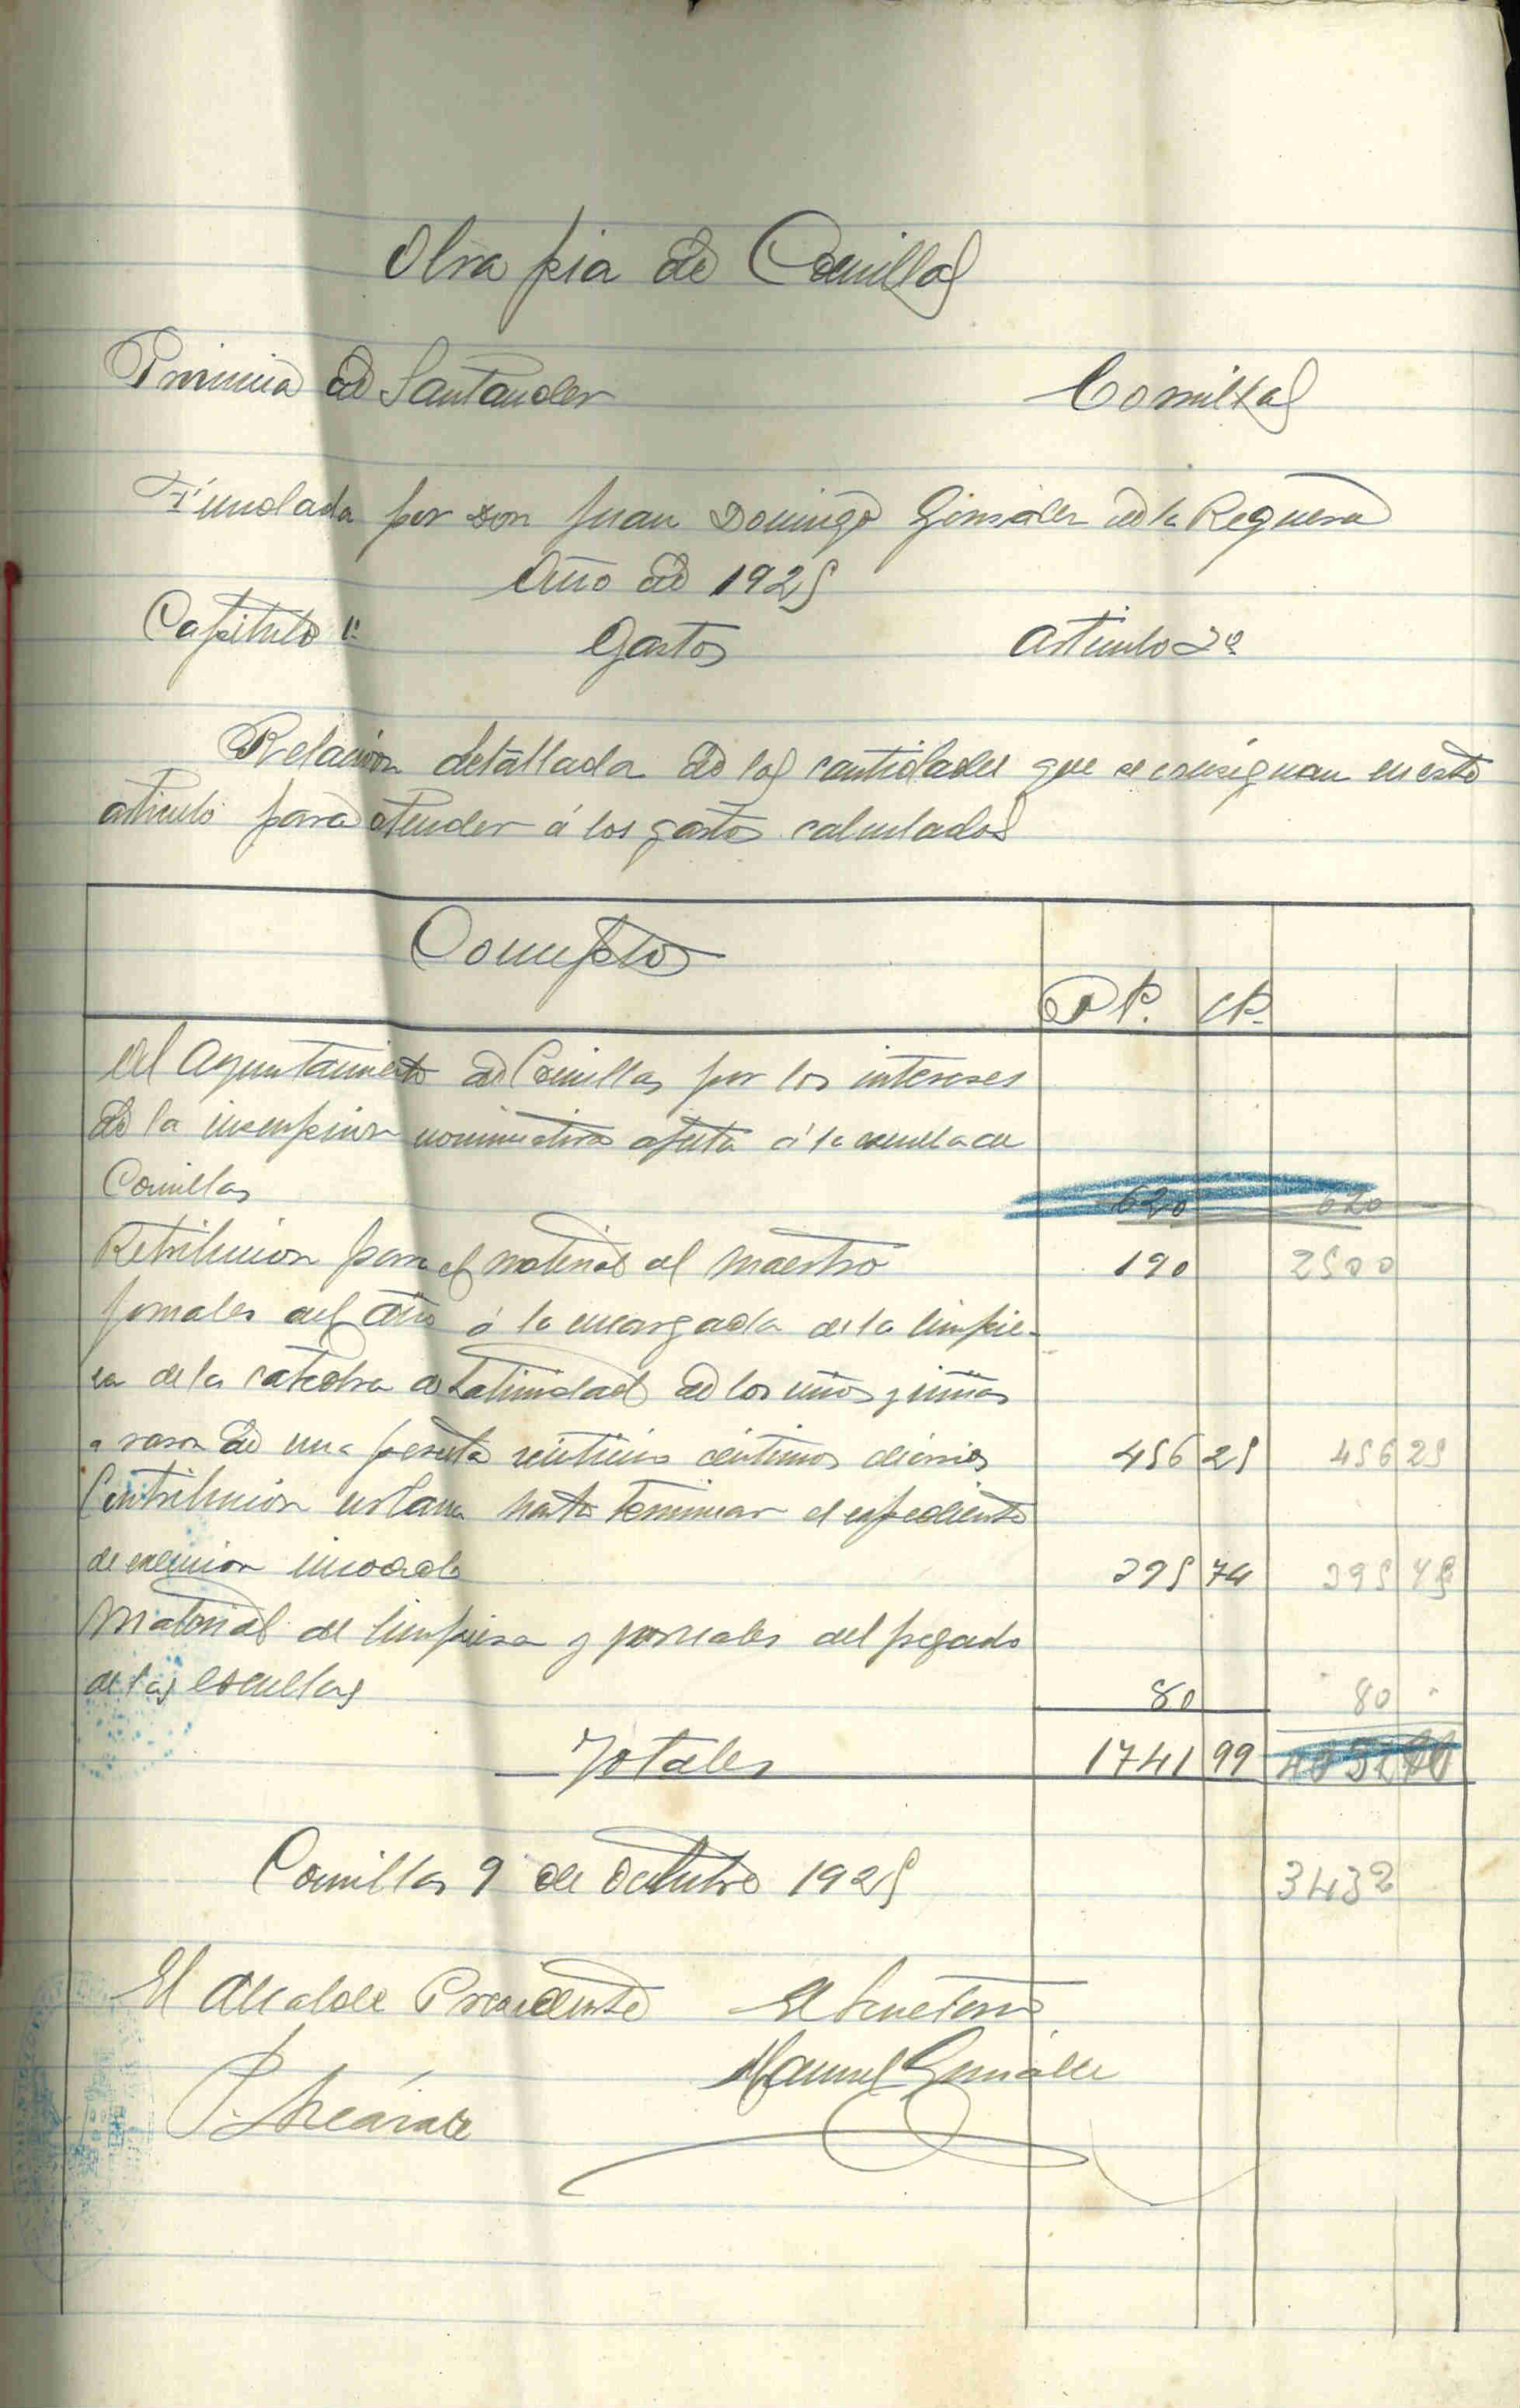 Obra pia de Comillas
Provincia de Santander Comillas
Fundada por Don Juan Domingo González de la Reguera
Año de 1925
Capitulo 1º Gastos Articulo 2º
Relación detallada de las cantidades que se consignan en este
articulo para atender á los gastos calculados
Conceptos
Pts. Cts.
Al Ayuntamiento de Comillas por los intereses
de la inscripcion nominativa afecta á la escuela de
Comillas 620 620
Retribucion para el material al Maestro 190 2500
Jornales del año á la encargada de la limpie-
za de la catedra de Latinidad de los niños y niñas
a razon de una peseta veinticinco centimos diarios 456 25 456 25
Contribucion urbana hasta terminar el expediente
de exencion incoado 395 74 395 75
Material de limpieza y jornales del fregado
de las escuelas 80 80
Totales 1741 99
Comillas 9 de Octubre 1925 3432
El Alcalde Presidente El Secretario
Manuel González